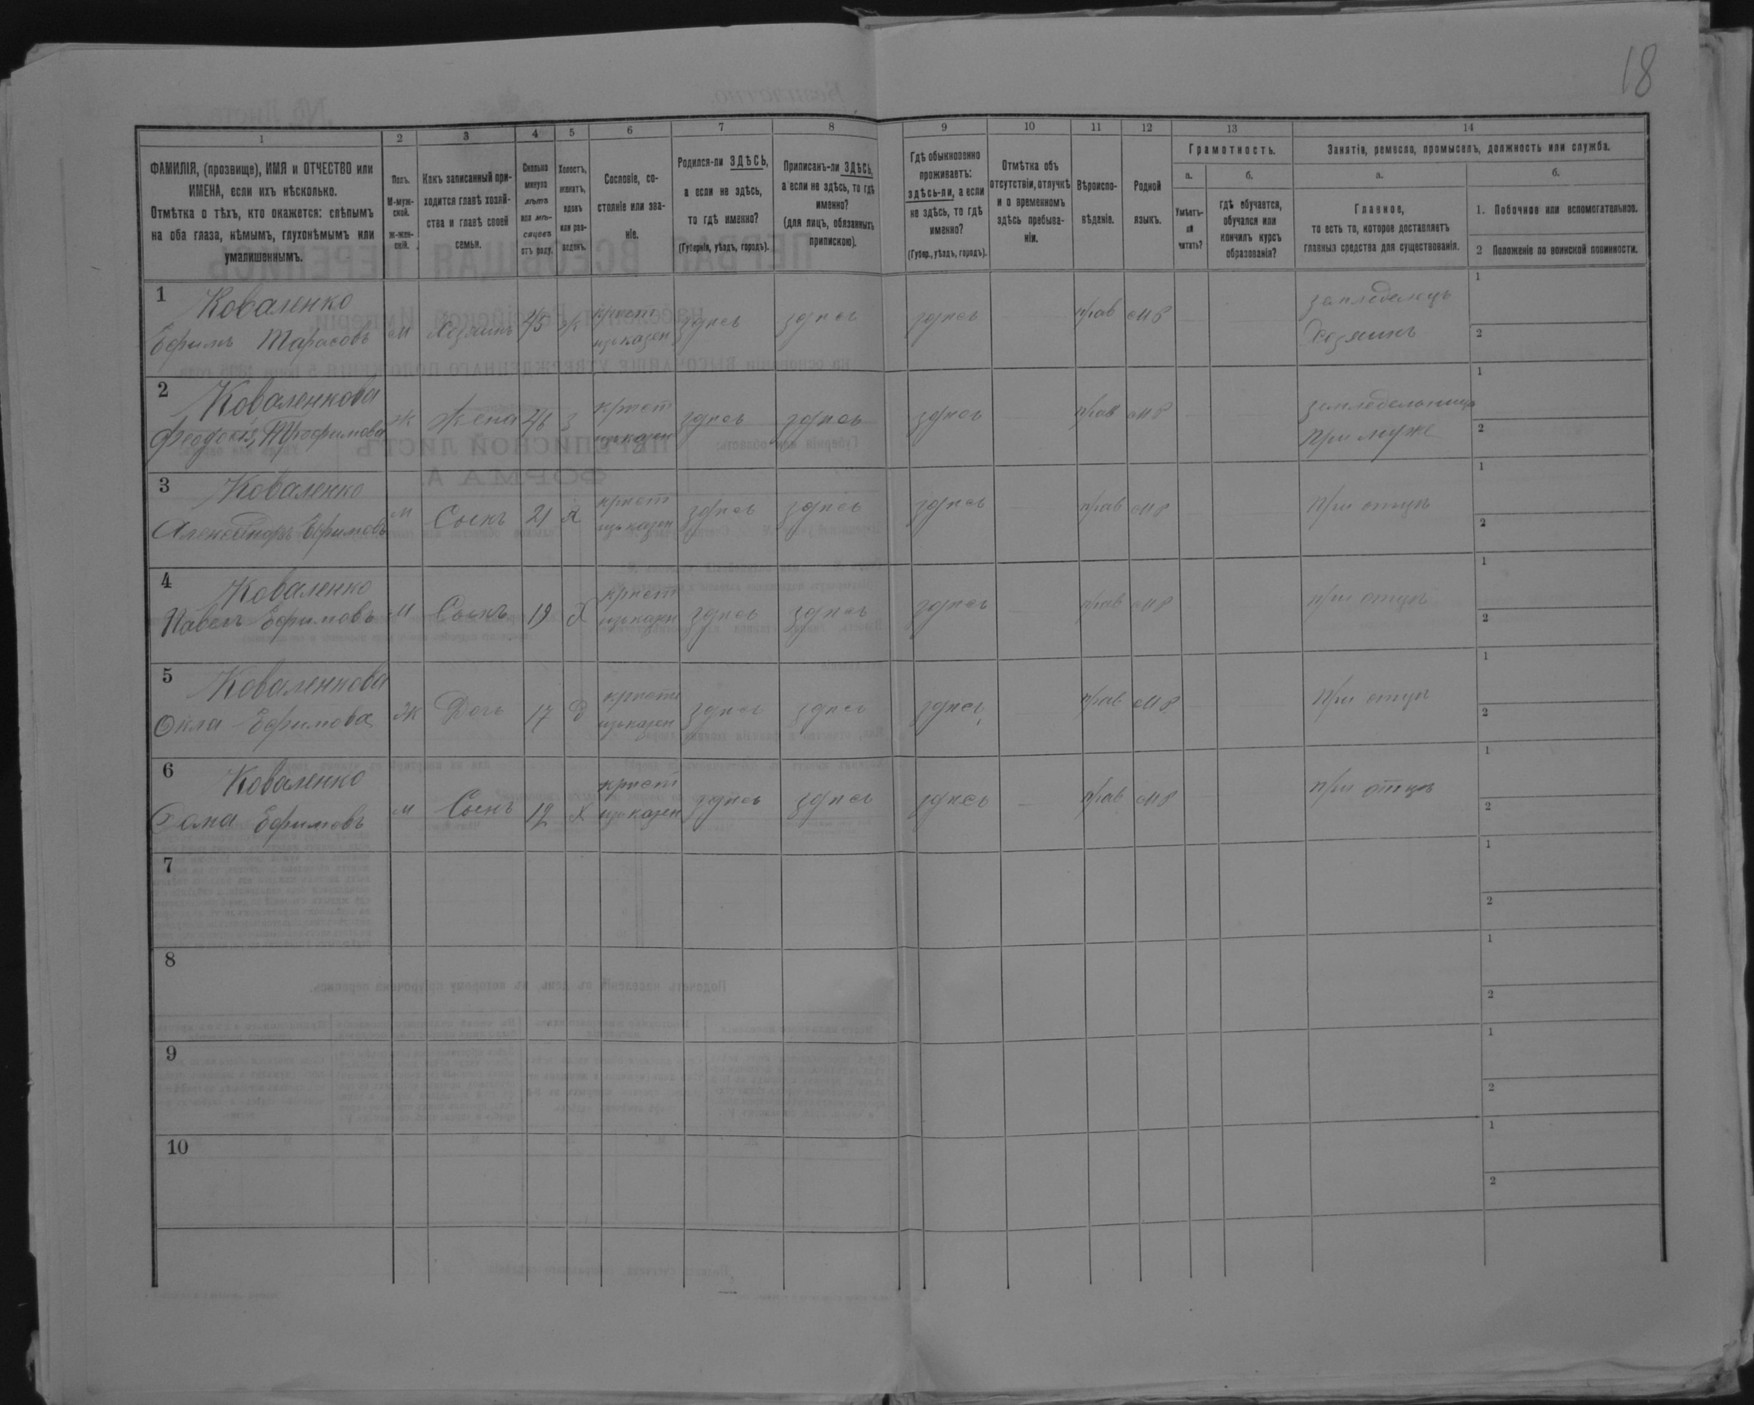 18
1
2
3
4
5
6
7
8
9
10
11
12
13
14
ФАМИЛІЯ, (прозвище), ИМЯ и ОТЧЕСТВО или
ИМЕНА, если ихъ нѣсколько.
Отмѣтка о тѣхъ, кто окажется: слѣпымъ
на оба глаза, нѣмымъ, глухонѣмымъ или
умалишеннымъ.
Полъ.
М-муж-
ской.
Ж-жен-
скій.
Какъ записанный при-
ходится главѣ хозяй-
ства и главѣ своей
семьи.
Сколько
минуло
лѣтъ
или мѣ-
сяцевъ
отъ роду.
Холостъ,
женатъ,
вдовъ
или раз-
веденъ.
Сословіе, со-
стояніе или зва-
ніе.
Родился-ли ЗДѢСЬ,
а если не здѣсь,
то гдѣ именно?
(Губернія, уѣздъ, городъ).
Приписанъ-ли ЗДѢСЬ,
а если не здѣсь, то гдѣ
именно?
(для лицъ, обязанныхъ
припискою).
Гдѣ обыкновенно
проживаетъ:
здѣсь-ли, а если
не здѣсь, то гдѣ
именно?
(Губер., уѣздъ, городъ).
Отмѣтка объ
отсутствіи, отлучкѣ
и о временномъ
здѣсь пребыва-
ніи.
Вѣроиспо-
вѣданіе.
Родной
языкъ.
Грамотность.
а.
Умѣетъ-
ли
читать?
б.
гдѣ обучается,
обучался или
кончилъ курсъ
образованія?
Занятіе, ремесло, промыселъ, должность или служба.
а.
Главное,
то есть то, которое доставляетъ
главныя средства для существованія.
б.
1. Побочное или вспомогательное.
2 Положеніе по воинской повинности.
1 Коваленко
Ефимъ Тарасовъ м Хозяинъ 45 ж крест изъ казен здѣсь здѣсь здѣсь прав мр земледелецъ Хозяинъ
1
2
2 Коваленкова
Феодосія Трофимова ж Жена 46 з крест изъ казен здѣсь здѣсь здѣсь прав мр земледелица при муже
1
2
3 Коваленко
Александръ Ефимовъ м Сынъ 21 х крест изъ казен здѣсь здѣсь здѣсь прав мр при отцѣ
1
2
4 Коваленко
Павелъ Ефимовъ м Сынъ 19 х крест изъ казен здѣсь здѣсь здѣсь прав мр при отцѣ
1
2
5 Коваленкова
Ѳекла Ефимова ж Дочь 17 д крест изъ казен здѣсь здѣсь здѣсь прав мр при отцѣ
1
2
6 Коваленко
Ѳома Ефимовъ м Сынъ 12 х крест изъ казен здѣсь здѣсь здѣсь прав мр при отцѣ
1
2
7
1
2
8
1
2
9
1
2
10
1
2